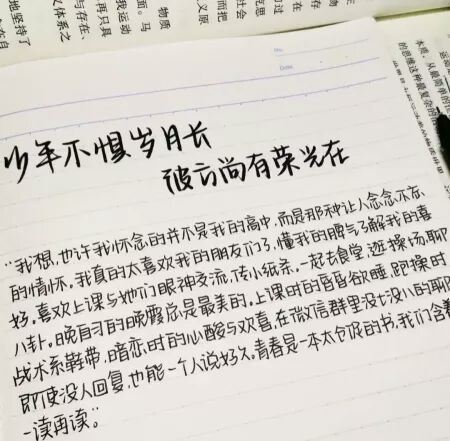 物质
No:
Date:
少年不惧岁月长
彼方尚有荣光在
"我想,也许我怀念的并不是我的高中,而是那种让人念念不忘
的情怀。我真的太喜欢我的朋友们了,懂我的脾气了解我的喜
好。喜欢上课与她们眼神交流,传小纸条。一起去食堂,逛操场,聊
八卦。晚自习的晚霞总是最美的,上课时的昏昏欲睡,跑操时
战术系鞋带,暗恋时的心酸与欢喜,在微信群里没七没八的聊
即使没人回复,也能一个人说好久。青春是一本太仓促的书,我们含着
一读再读。"